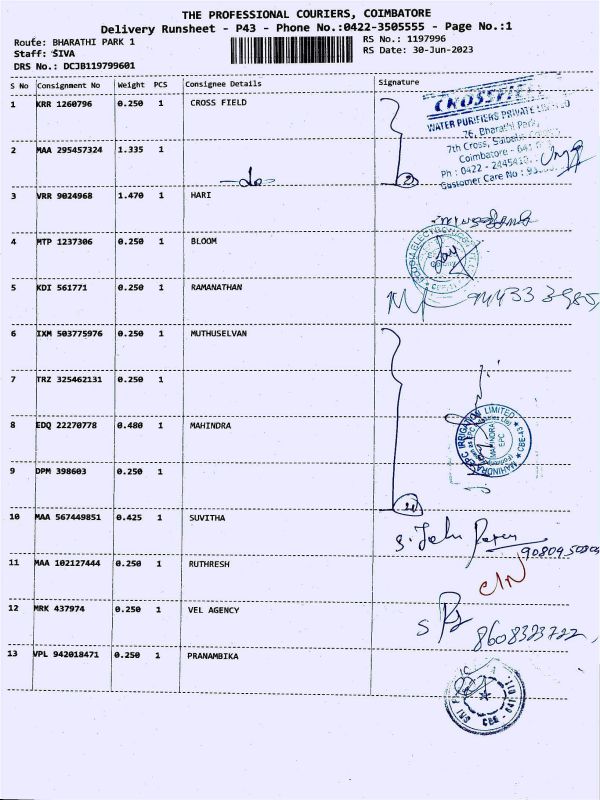 THE PROFESSIONAL COURIERS, COIMBATORE
Delivery Runsheet - P43 - Phone No.:0422-3505555 - Page No.:1
Route: BHARATHI PARK 1 RS No.: 1197996
Staff: SIVA RS Date: 30-Jun-2023
DRS No.: DCJB119799601
S No Consignment No Weight PCS Consignee Details Signature
1 KRR 1260796 0.250 1 CROSS FIELD
WATER PURIFIERS PRIVATE
76, Bharathi Park,
7th Cross, Saibaba
Coimbatore - 641
Ph : 0422 - 2445
Customer Care No :
2 MAA 295457324 1.335 1
-do-
3 VRR 9024968 1.470 1 HARI
4 MTP 1237306 0.250 1 BLOOM
5 KDI 561771 0.250 1 RAMANATHAN
6 IXM 503775976 0.250 1 MUTHUSELVAN
7 TRZ 325462131 0.250 1
8 EDQ 22270778 0.480 1 MAHINDRA
MAHINDRA EPC IRRIGATION LIMITED
MAHINDRA
EPC
CBE-43
9 DPM 398603 0.250 1
10 MAA 567449851 0.425 1 SUVITHA
S. John
11 MAA 102127444 0.250 1 RUTHRESH
12 MRK 437974 0.250 1 VEL AGENCY
8608323722
13 VPL 942018471 0.250 1 PRANAMBIKA